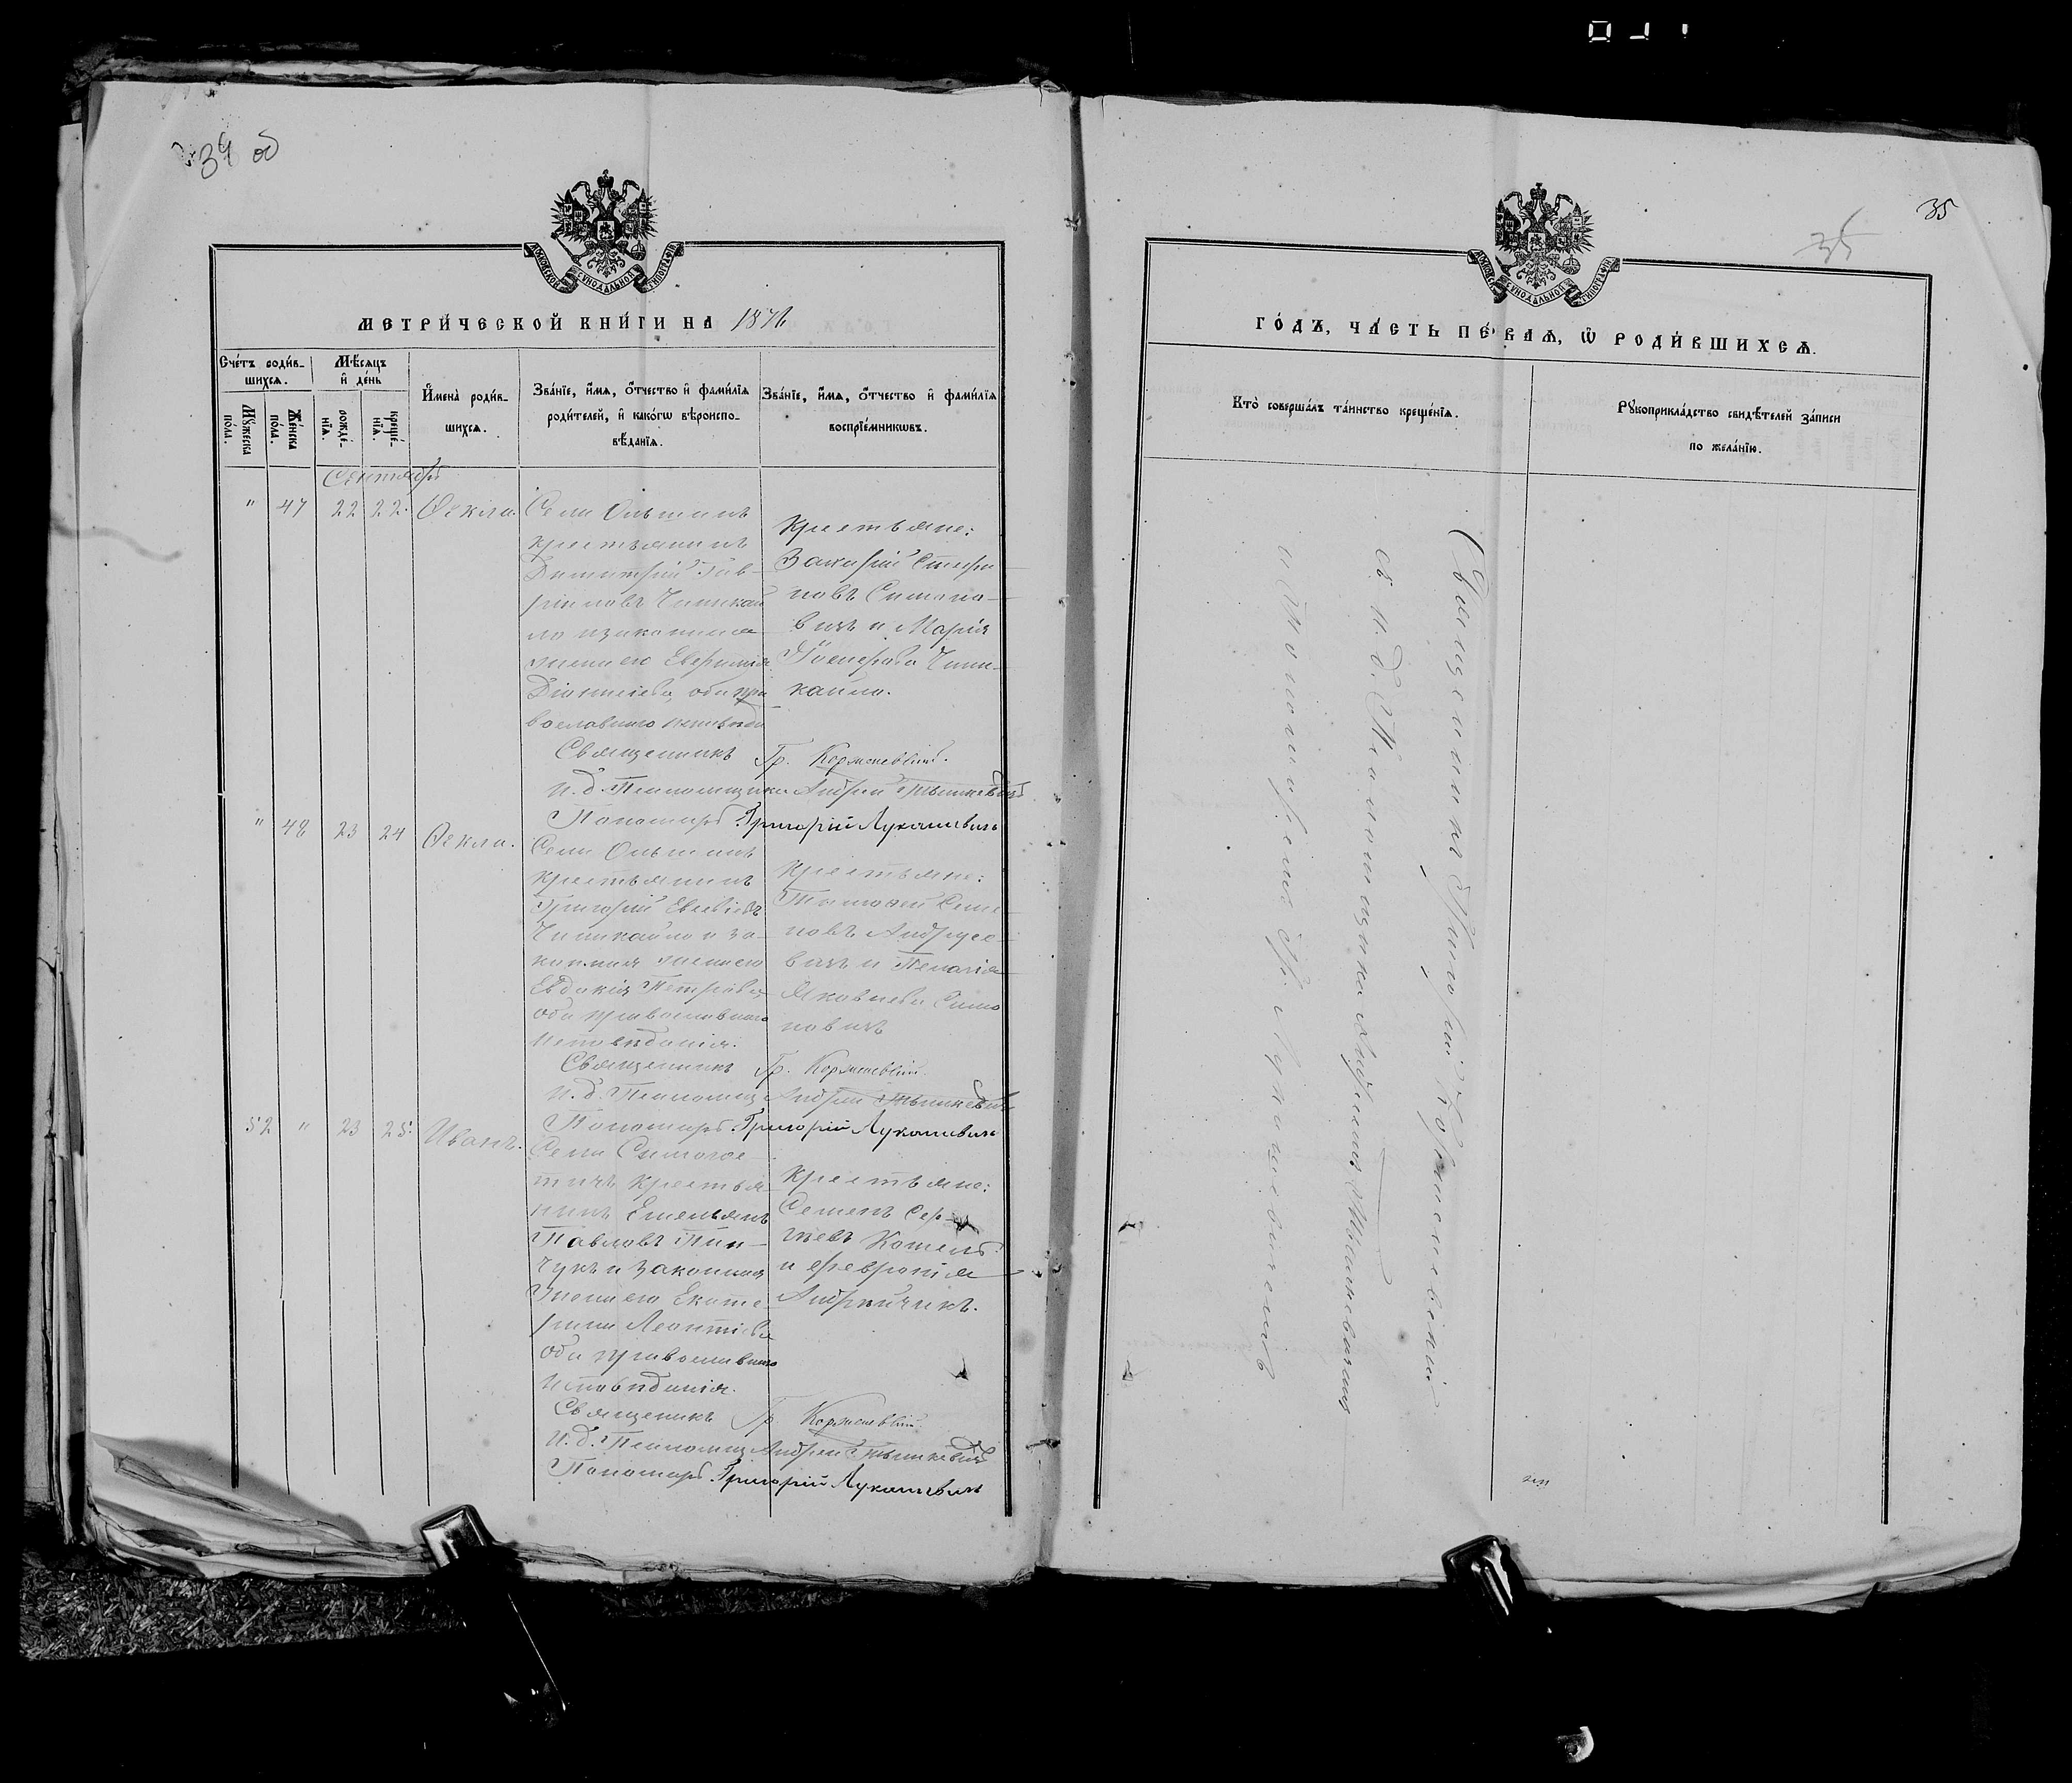 34 об
МОСКОВСКОЙ СѴНОДАЛЬНОЙ ТИПОГРАФІИ
МЕТРИ́ЧЕСКОЙ КНИ́ГИ НА 1876
Сче́тъ роди́в-
шихсѧ.
Мѣ́сѧцъ
и҆ де́нь
Мꙋ́жеска
по́ла.
Же́нска
по́ла.
рожде́-
нїѧ.
креще́-
нїѧ.
И҆мена̀ роди́в-
шихсѧ.
Зва́нїе, и҆́мѧ, ѻ҆́тчество и҆ фами́лїѧ
роди́телей, и҆ како́гѡ вѣроиспо-
вѣ́данїѧ.
Зва́нїе, и҆́мѧ, ѻ҆́тчество и҆ фами́лїѧ
воспрїе́мникѡвъ.
Сентябрь
" 47 22 22. Ѳекла.
Села Ольшанъ
крестьянинъ
Димитрій Гав-
ріиловъ Чишкай
ло и законная
жена его Евфимія
Діонисіева, оба пра
вославнаго исповѣда
Крестьяне:
Захарій Стефа
новъ Симоно-
вичъ и Марія
Іосифова Чиш-
кайло.
Священникъ Гр. Коржиневскій.
И. д. Псаломщика Андрей Тышкевичъ
Пономарь Григорій Лукашевичъ
" 48 23 24 Ѳекла.
Села Ольшанъ
крестьянинъ
Григорій Евсевіевъ
Чишкайло и за-
конная жена его
Евдокія Петрова
оба православнаго
исповѣданія.
Крестьяне:
Тимофей Семе
новъ Андрусе-
вичъ и Пелагія
Яковлева Симо
новичъ
Священникъ Гр. Коржиневскій.
И. д. Псаломщ Андрей Тышкевичъ
Пономарь Григорій Лукашевичъ
52 " 23 25. Иванъ.
крестья-
нинъ Емельянъ
Павловъ Пин-
чукъ и законная
жена его Екате-
рина Леонтіева
оба православнаго
исповѣданія.
Крестьяне:
Семенъ Сер-
гѣевъ
и Февронія
Андрейчикъ.
Священникъ Гр. Коржиневскій.
И. д. Псаломщ Андрей Тышкевичъ
Пономарь Григорій Лукашевичъ
35
35
МОСКОВСКОЙ СѴНОДАЛЬНОЙ ТИПОГРАФІИ
ГО́ДЪ, ЧА́СТЬ ПЕ́РВАѦ, Ѽ РОДИ́ВШИХСѦ.
Кто̀ соверша́лъ та́инство креще́нїѧ.
Рꙋкоприкла́дство свидѣ́телей за́писи
по жела́нїю.
Священникъ Григорій Коржиневскій
съ и. д. Псаломщика Андреемъ Тышкевичемъ
и Пономаремъ Гр. Лукашевичемъ